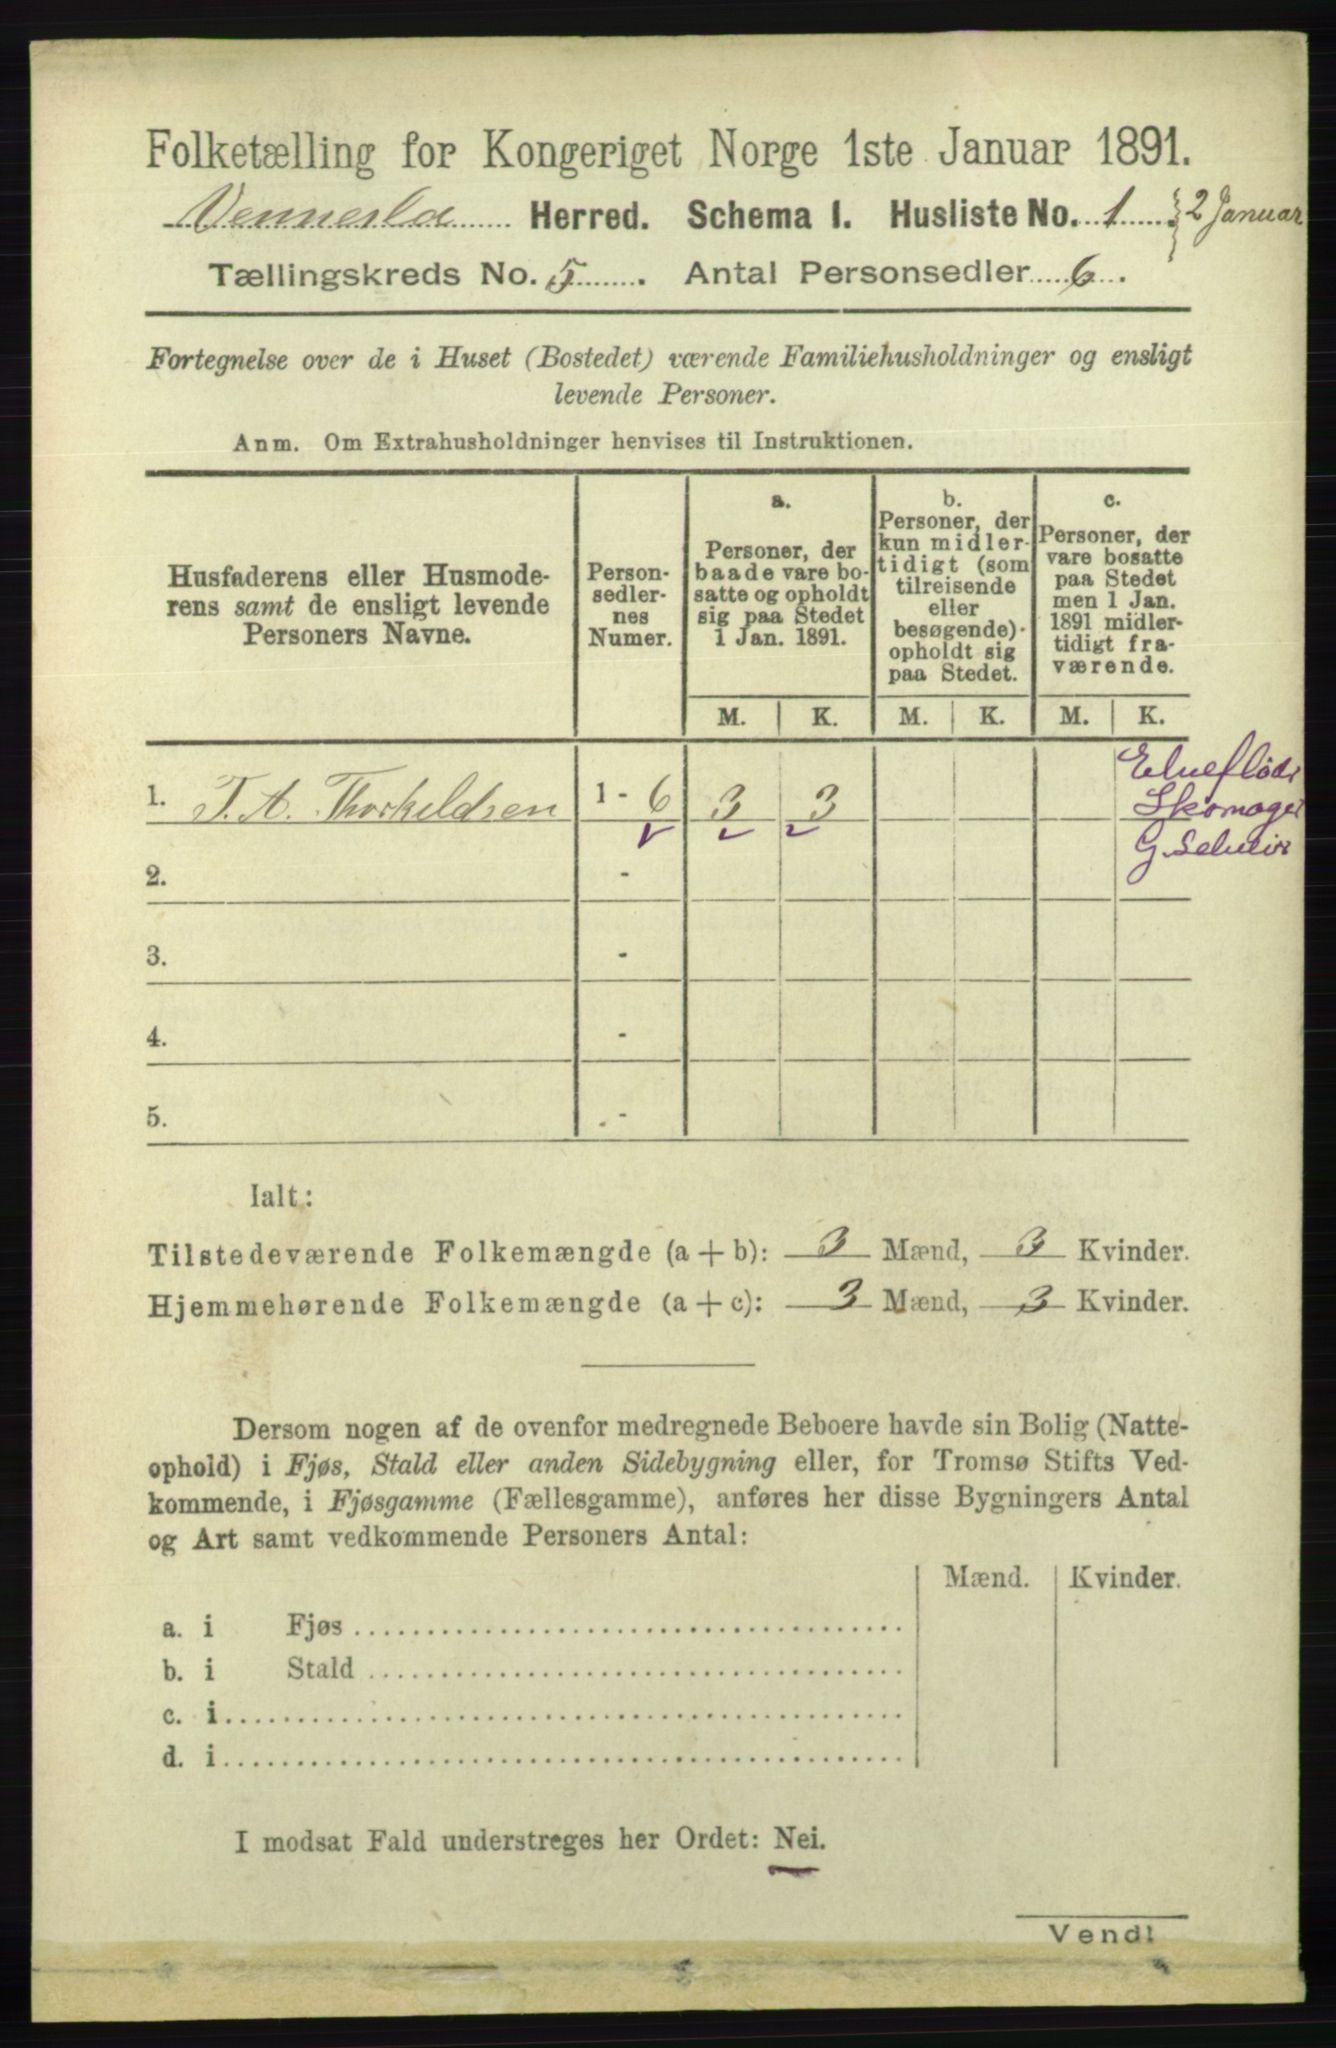 Folketælling for Kongeriget Norge 1ste Januar 1891.
Vennesla Herred. Schema I. Husliste No. 1 2 Januar
Tællingskreds No. 5. Antal Personsedler 6.
Fortegnelse over de i Huset (Bostedet) værende Familiehusholdninger og ensligt
levende Personer.
Anm. Om Extrahusholdninger henvises til Instruktionen.
Husfaderens eller Husmode-
rens samt de ensligt levende
Personers Navne.
Person-
sedler-
nes
Numer.
a.
Personer, der
baade vare bo-
satte og opholdt
sig paa Stedet
1 Jan. 1891.
b.
Personer, der
kun midler-
tidigt (som
tilreisende
eller
besøgende)
opholdt sig
paa Stedet.
c.
Personer, der
vare bosatte
paa Stedet
men 1 Jan.
1891 midler-
tidigt fra-
værende.
M. K. M. K. M. K.
1. T. A. Thorkeldsen 1 - 6 3 3
Skomager
2. -
3. -
4. -
5. -
Ialt:
Tilstedeværende Folkemængde (a + b): 3 Mænd, 3 Kvinder.
Hjemmehørende Folkemængde (a + c): 3 Mænd, 3 Kvinder.
Dersom nogen af de ovenfor medregnede Beboere havde sin Bolig (Natte-
ophold) i Fjøs, Stald eller anden Sidebygning eller, for Tromsø Stifts Ved-
kommende, i Fjøsgamme (Fællesgamme), anføres her disse Bygningers Antal
og Art samt vedkommende Personers Antal:
Mænd. Kvinder.
a. i Fjøs
b. i Stald
c. i
d. i
I modsat Fald understreges her Ordet: Nei.
Vend!